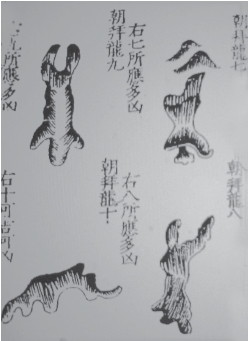 朝拜龍七
右七所應多凶
朝拜龍八
右八所應多凶
朝拜龍九
九所應多凶
朝拜龍十
右十可吉可凶